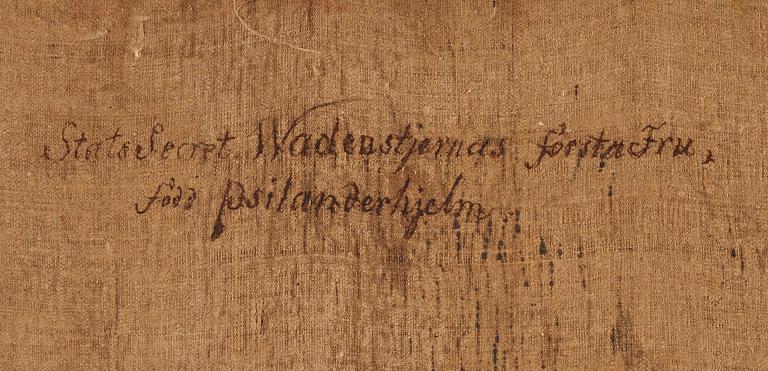 Stats Secret. Wadenstjernas första Fru,
född Psilanderhjelm.